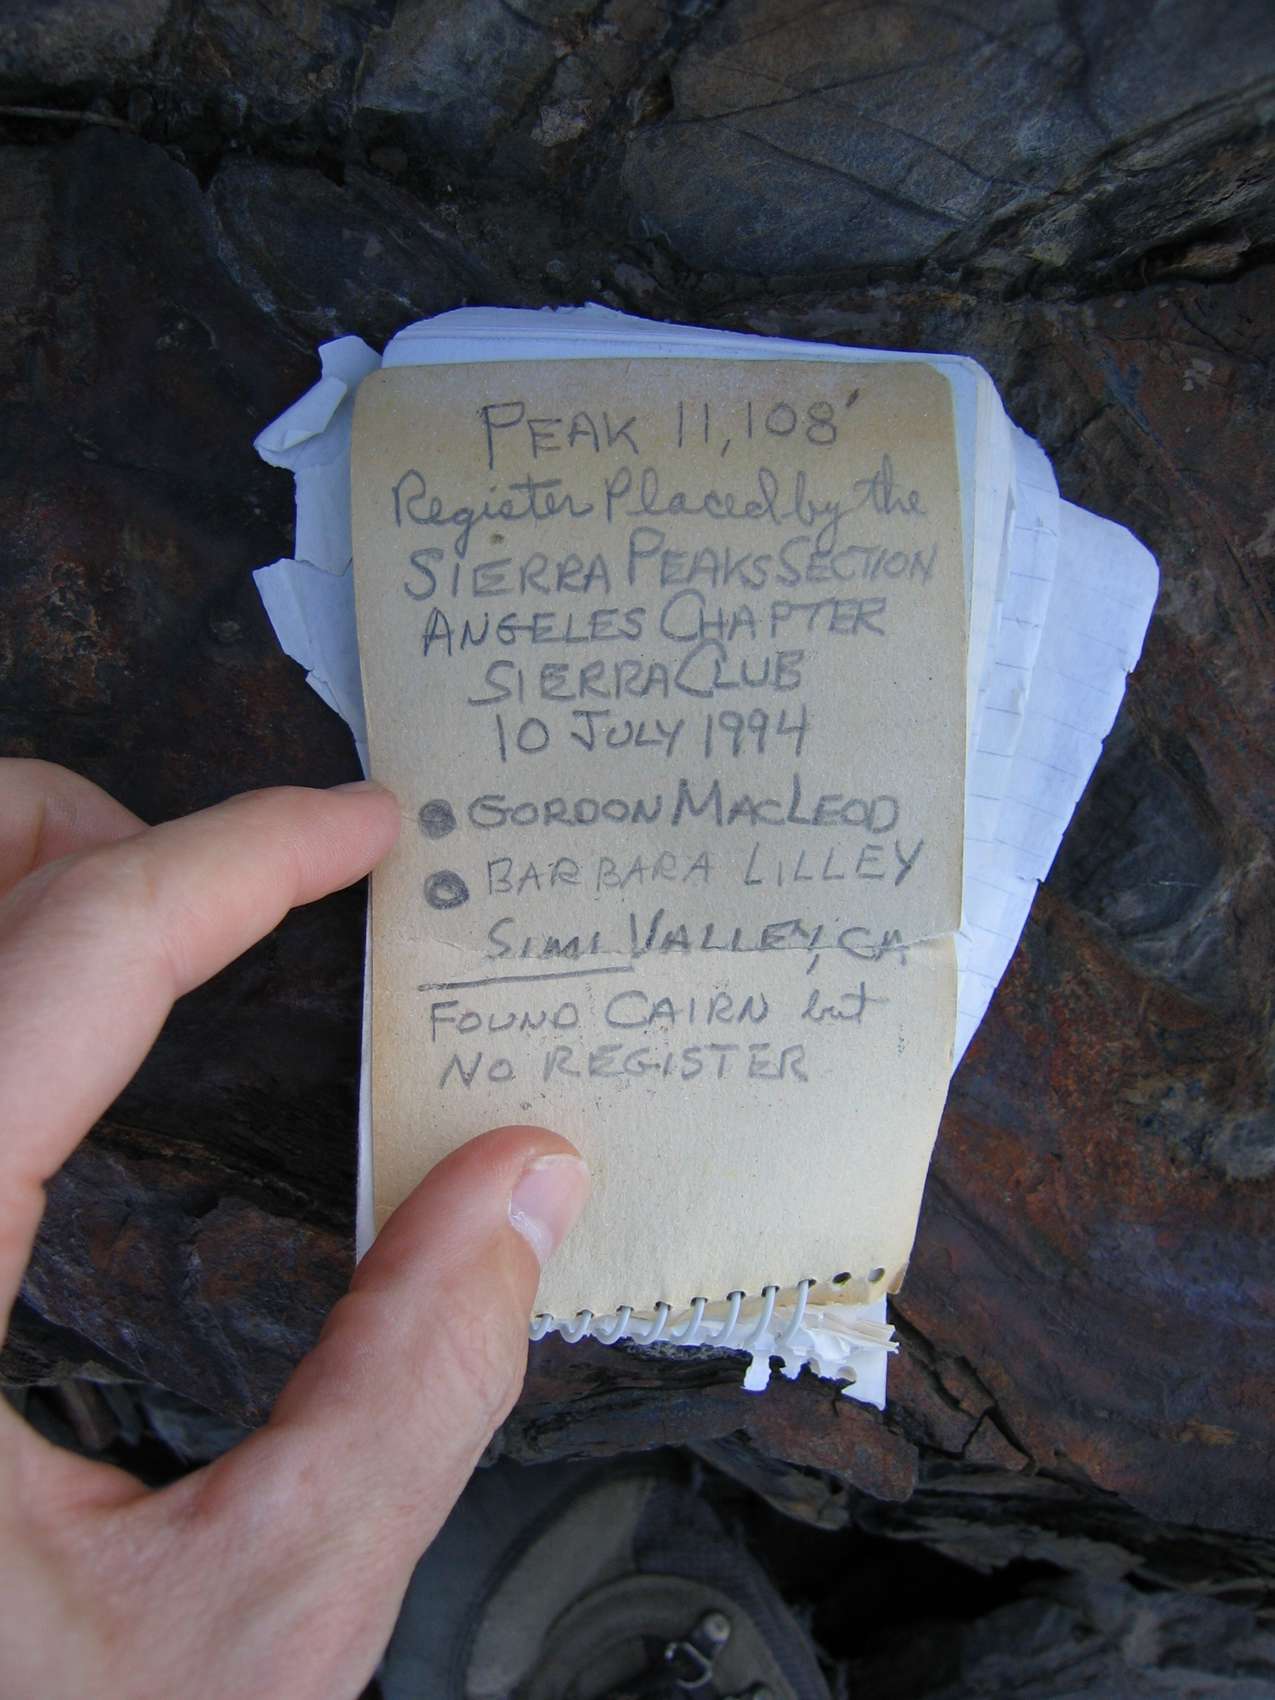 PEAK 11,108'
Register Placed by the
SIERRA PEAKS SECTION
ANGELES CHAPTER
SIERRA CLUB
10 JULY 1994
GORDON MACLEOD
BARBARA LILLEY
SIMI VALLEY, CA
FOUND CAIRN but
NO REGISTER